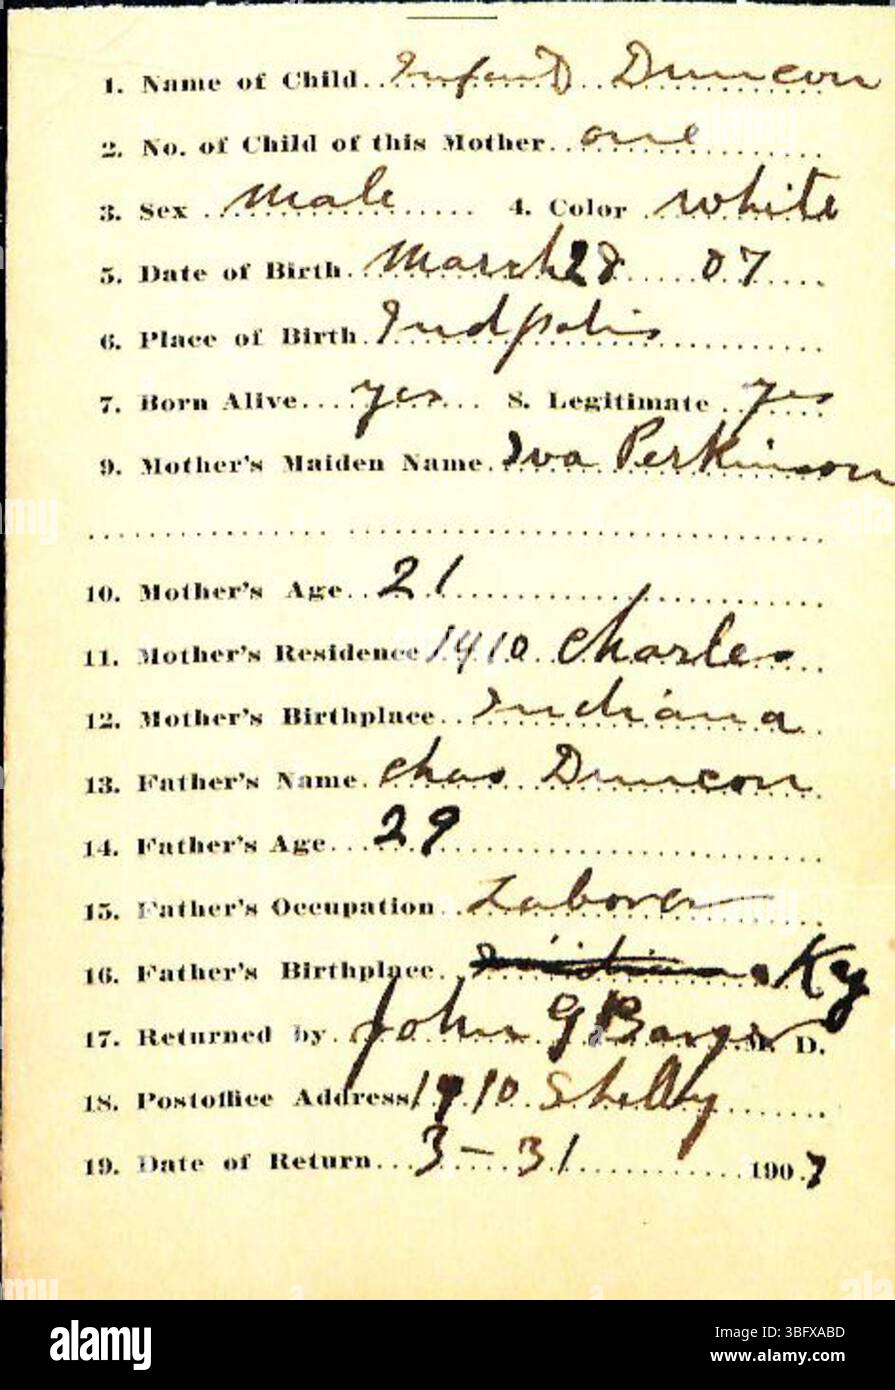 1. Name of Child Infant Duncan
2. No. of Child of this Mother one
3. Sex Male 4. Color white
5. Date of Birth March 28 07
6. Place of Birth Indpolis
7. Born Alive yes 8. Legitimate yes
9. Mother's Maiden Name Iva Perkinson
10. Mother's Age 21
11. Mother's Residence 1410 Charles
12. Mother's Birthplace Indiana
13. Father's Name Chas Duncan
14. Father's Age 29
15. Father's Occupation Laborer
16. Father's Birthplace Ky
17. Returned by John G M. D.
18. Postoffice Address 1910 Shelby
19. Date of Return 3-31 1907
alamy
Image ID: 3BFXABD
www.alamy.com